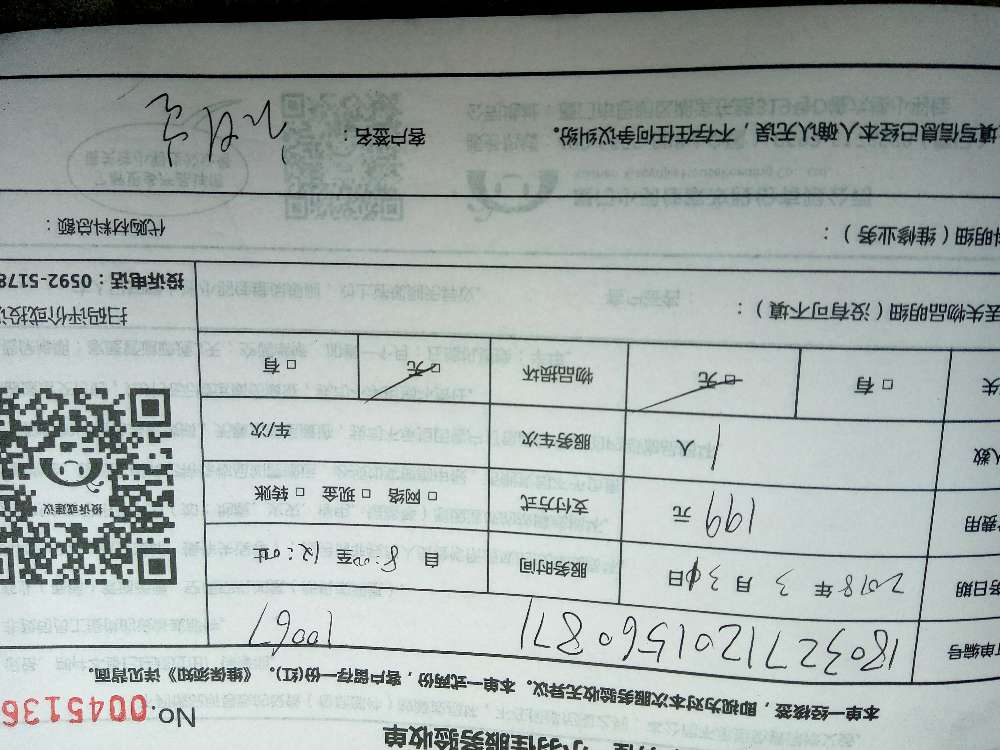 小羽佳服务验收单
No.0045136
本单一经核签，即视为对本次服务验收无异议。本单一式两份，客户留存一份(红)。《维保须知》详见背面。
单编号 180327120156087 1 10067
务日期 2018年3月30日 服务时间 自8:00至12:
费用 199元 支付方式 □ 网络 □ 现金 □ 转账
人数 1人 服务车次 车/次
失 □ 有 □ 无 物品损坏 □ 无 □ 有
投诉或建议
扫码评价或投
投诉电话：0592-5178
丢失物品明细（没有可不填）：
明细（维修业务）： 代购材料总额：
填写信息已经本人确认无误，不存在任何争议纠纷。 客户签名：